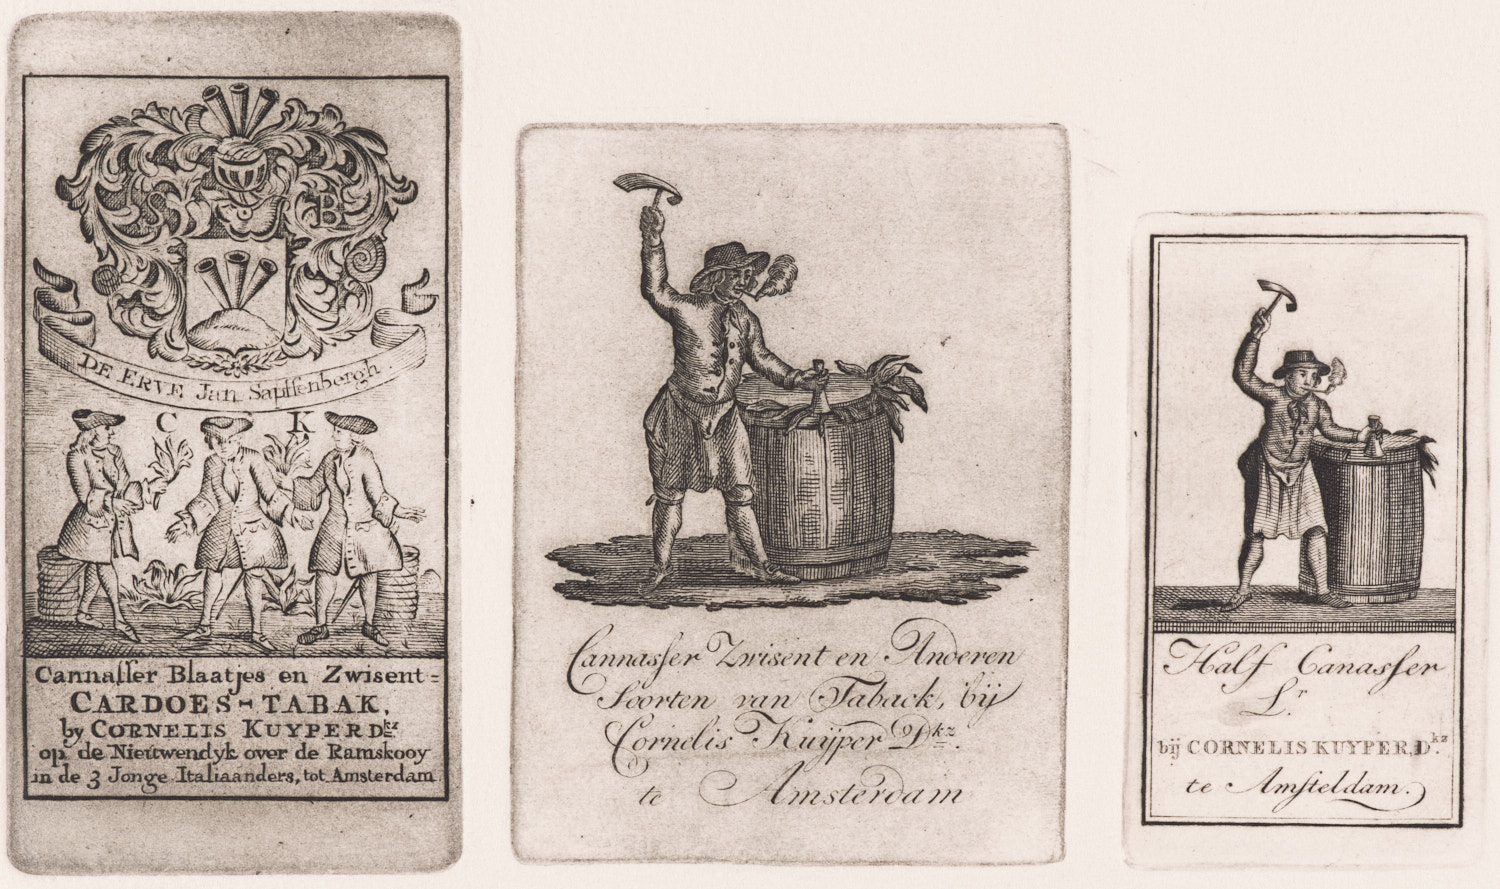 S B
DE ERVE Jan Sapffenbergh
C K
Cannasser Blaatjes en Zwisent=
CARDOES-TABAK,
by CORNELIS KUYPER Dkz
op de Nieuwendyk over de Ramskooy
in de 3 Jonge Italiaanders, tot Amsterdam
Cannasser Zwisent en Anderen
Soorten van Taback, bij
Cornelis Kuÿper Dkz.
te Amsterdam
Half Canasser
Lr.
bij CORNELIS KUYPER, Dkz.
te Amsteldam.